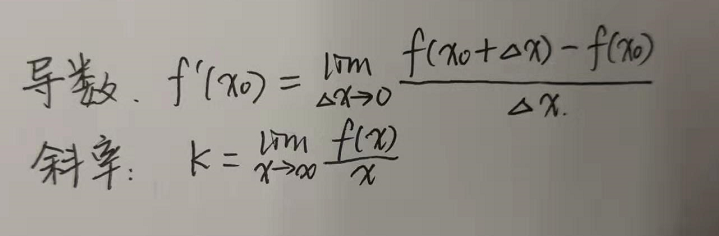 导数. f'(x₀) = lim Δx→0 f(x₀+Δx)-f(x₀) / Δx.
斜率: k = lim x→∞ f(x) / x